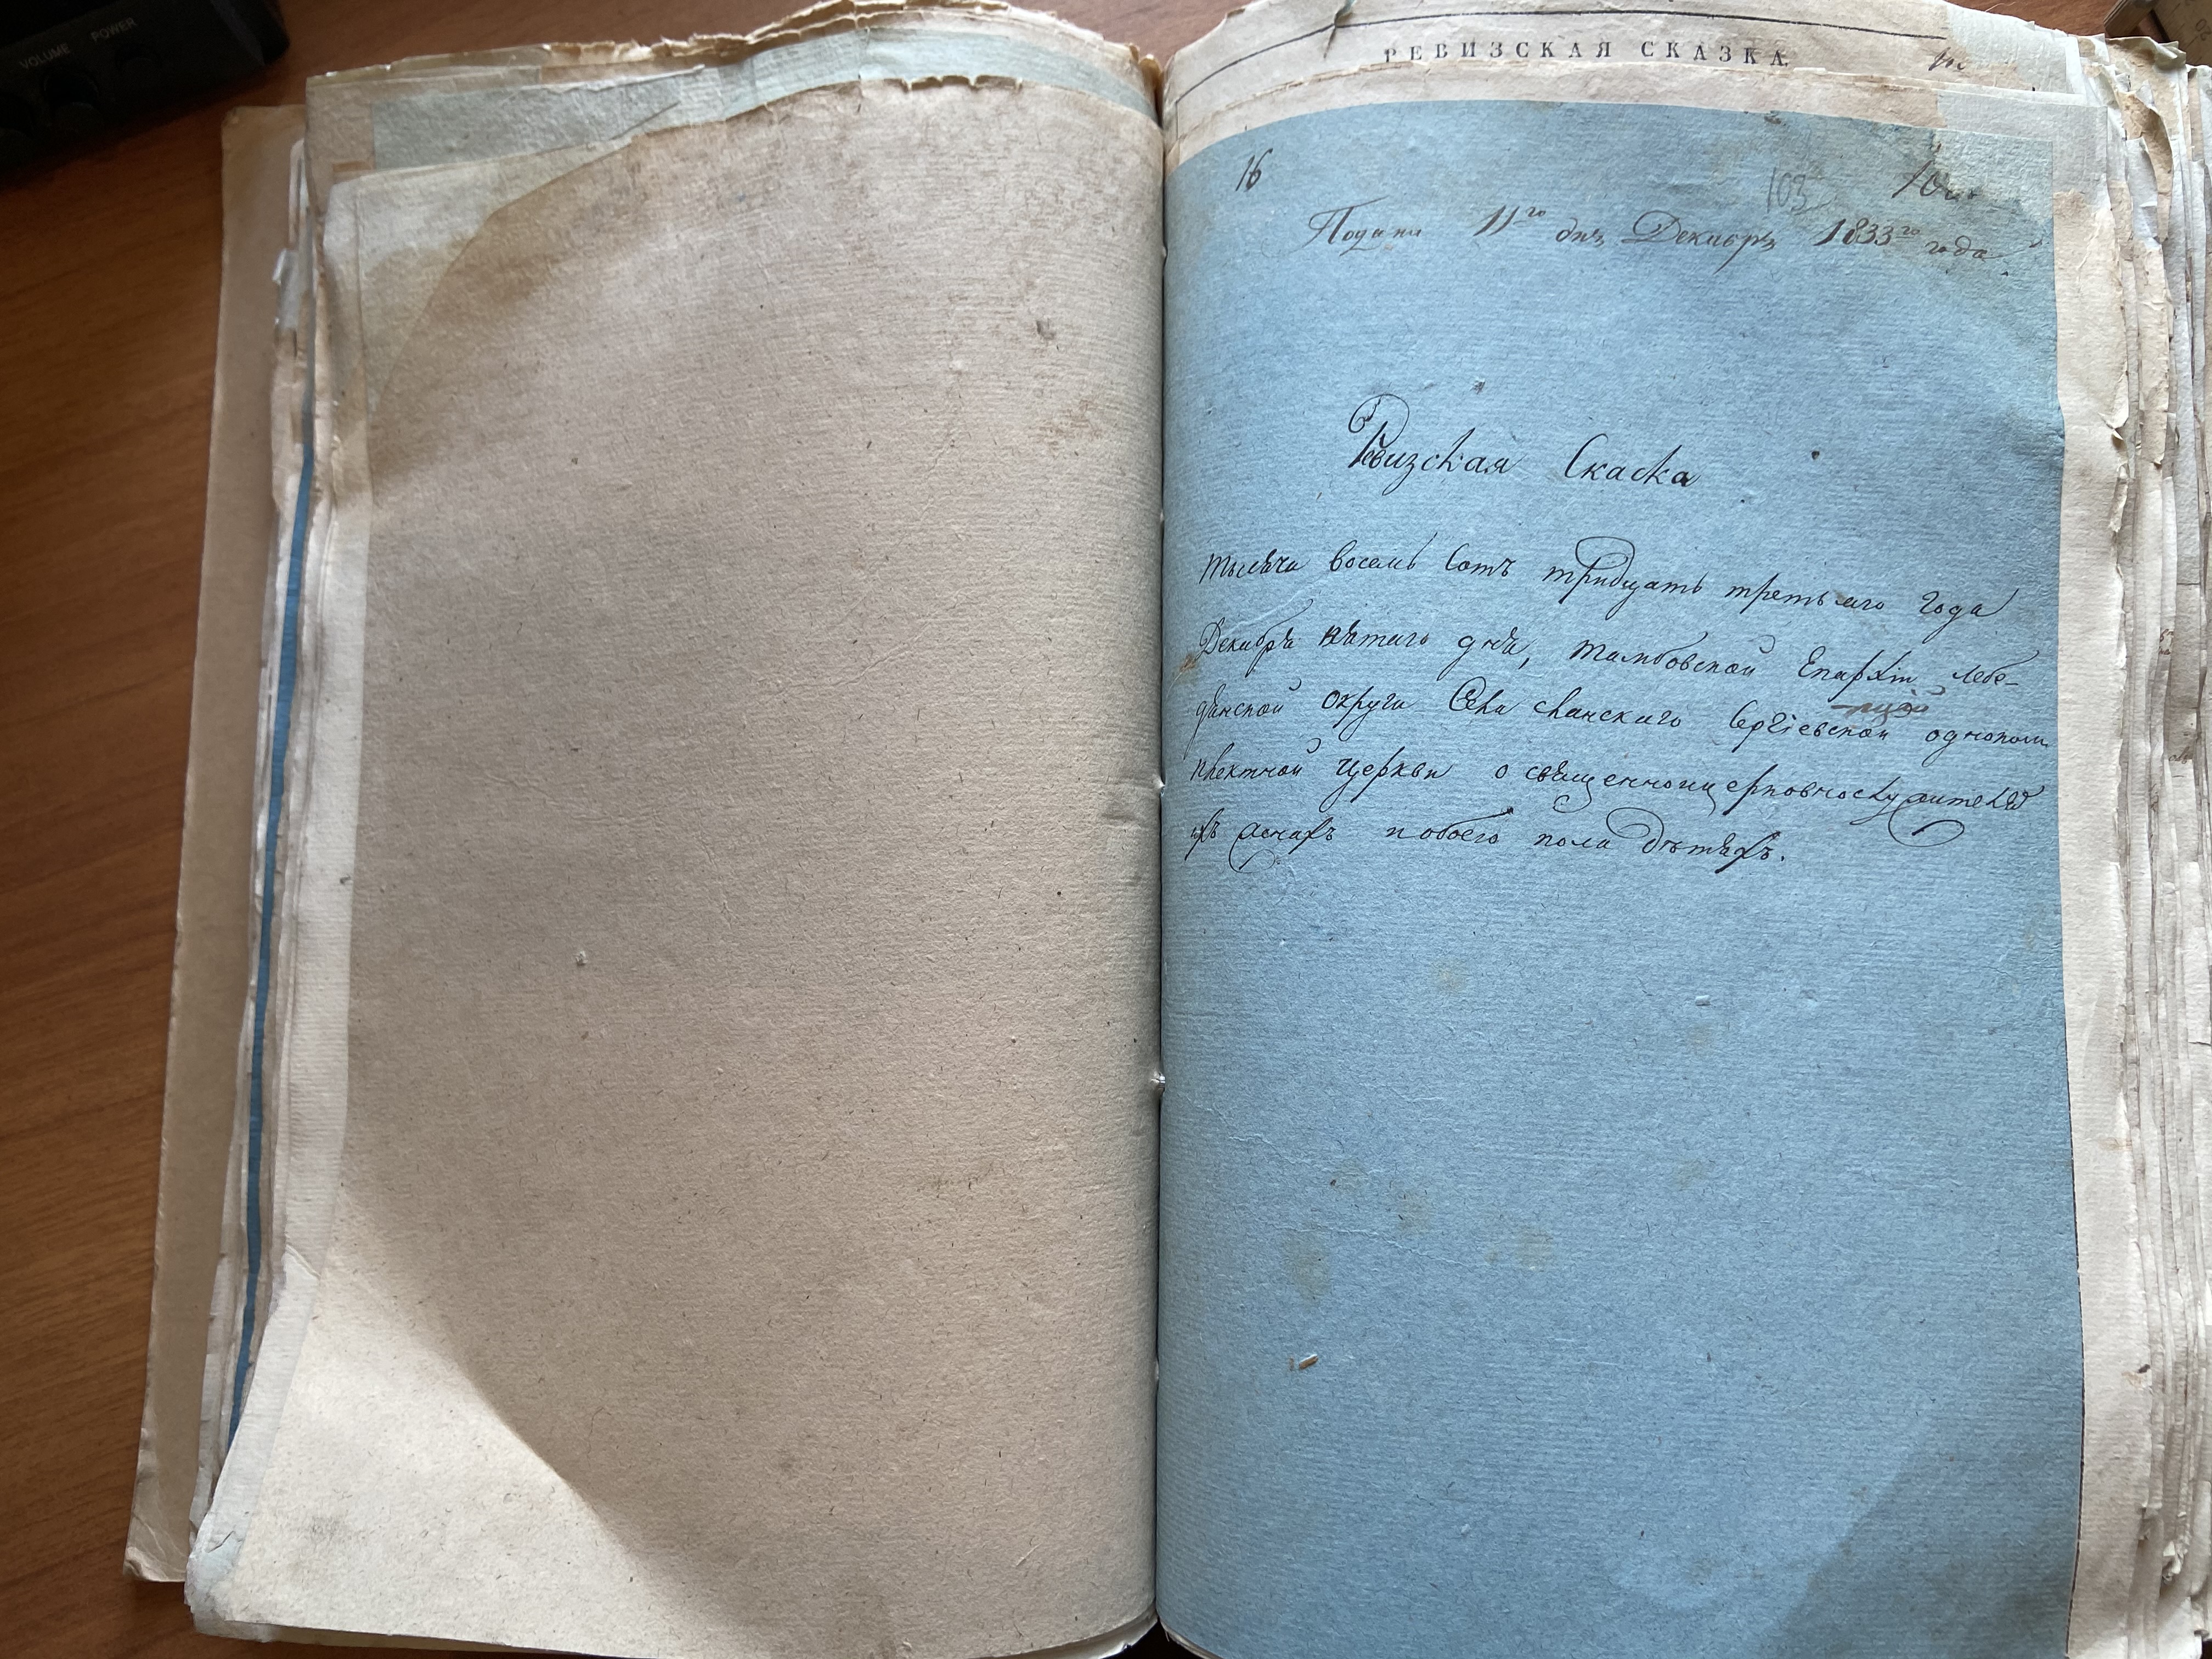 VOLUME POWER
РЕВИЗСКАЯ СКАЗКА
16
103
Подана 11го дня Декабря 1833го года.
Ревизская Скаска
тысяча восемь сотъ тридцать третьяго года
Декабря пятаго дня, тамбовской Епархіи лебе-
дянской округи Села сланскаго Сергіевской однопом
плектной церкви о священноицерковнослужителя
хъ женахъ и обоего пола дѣтяхъ.